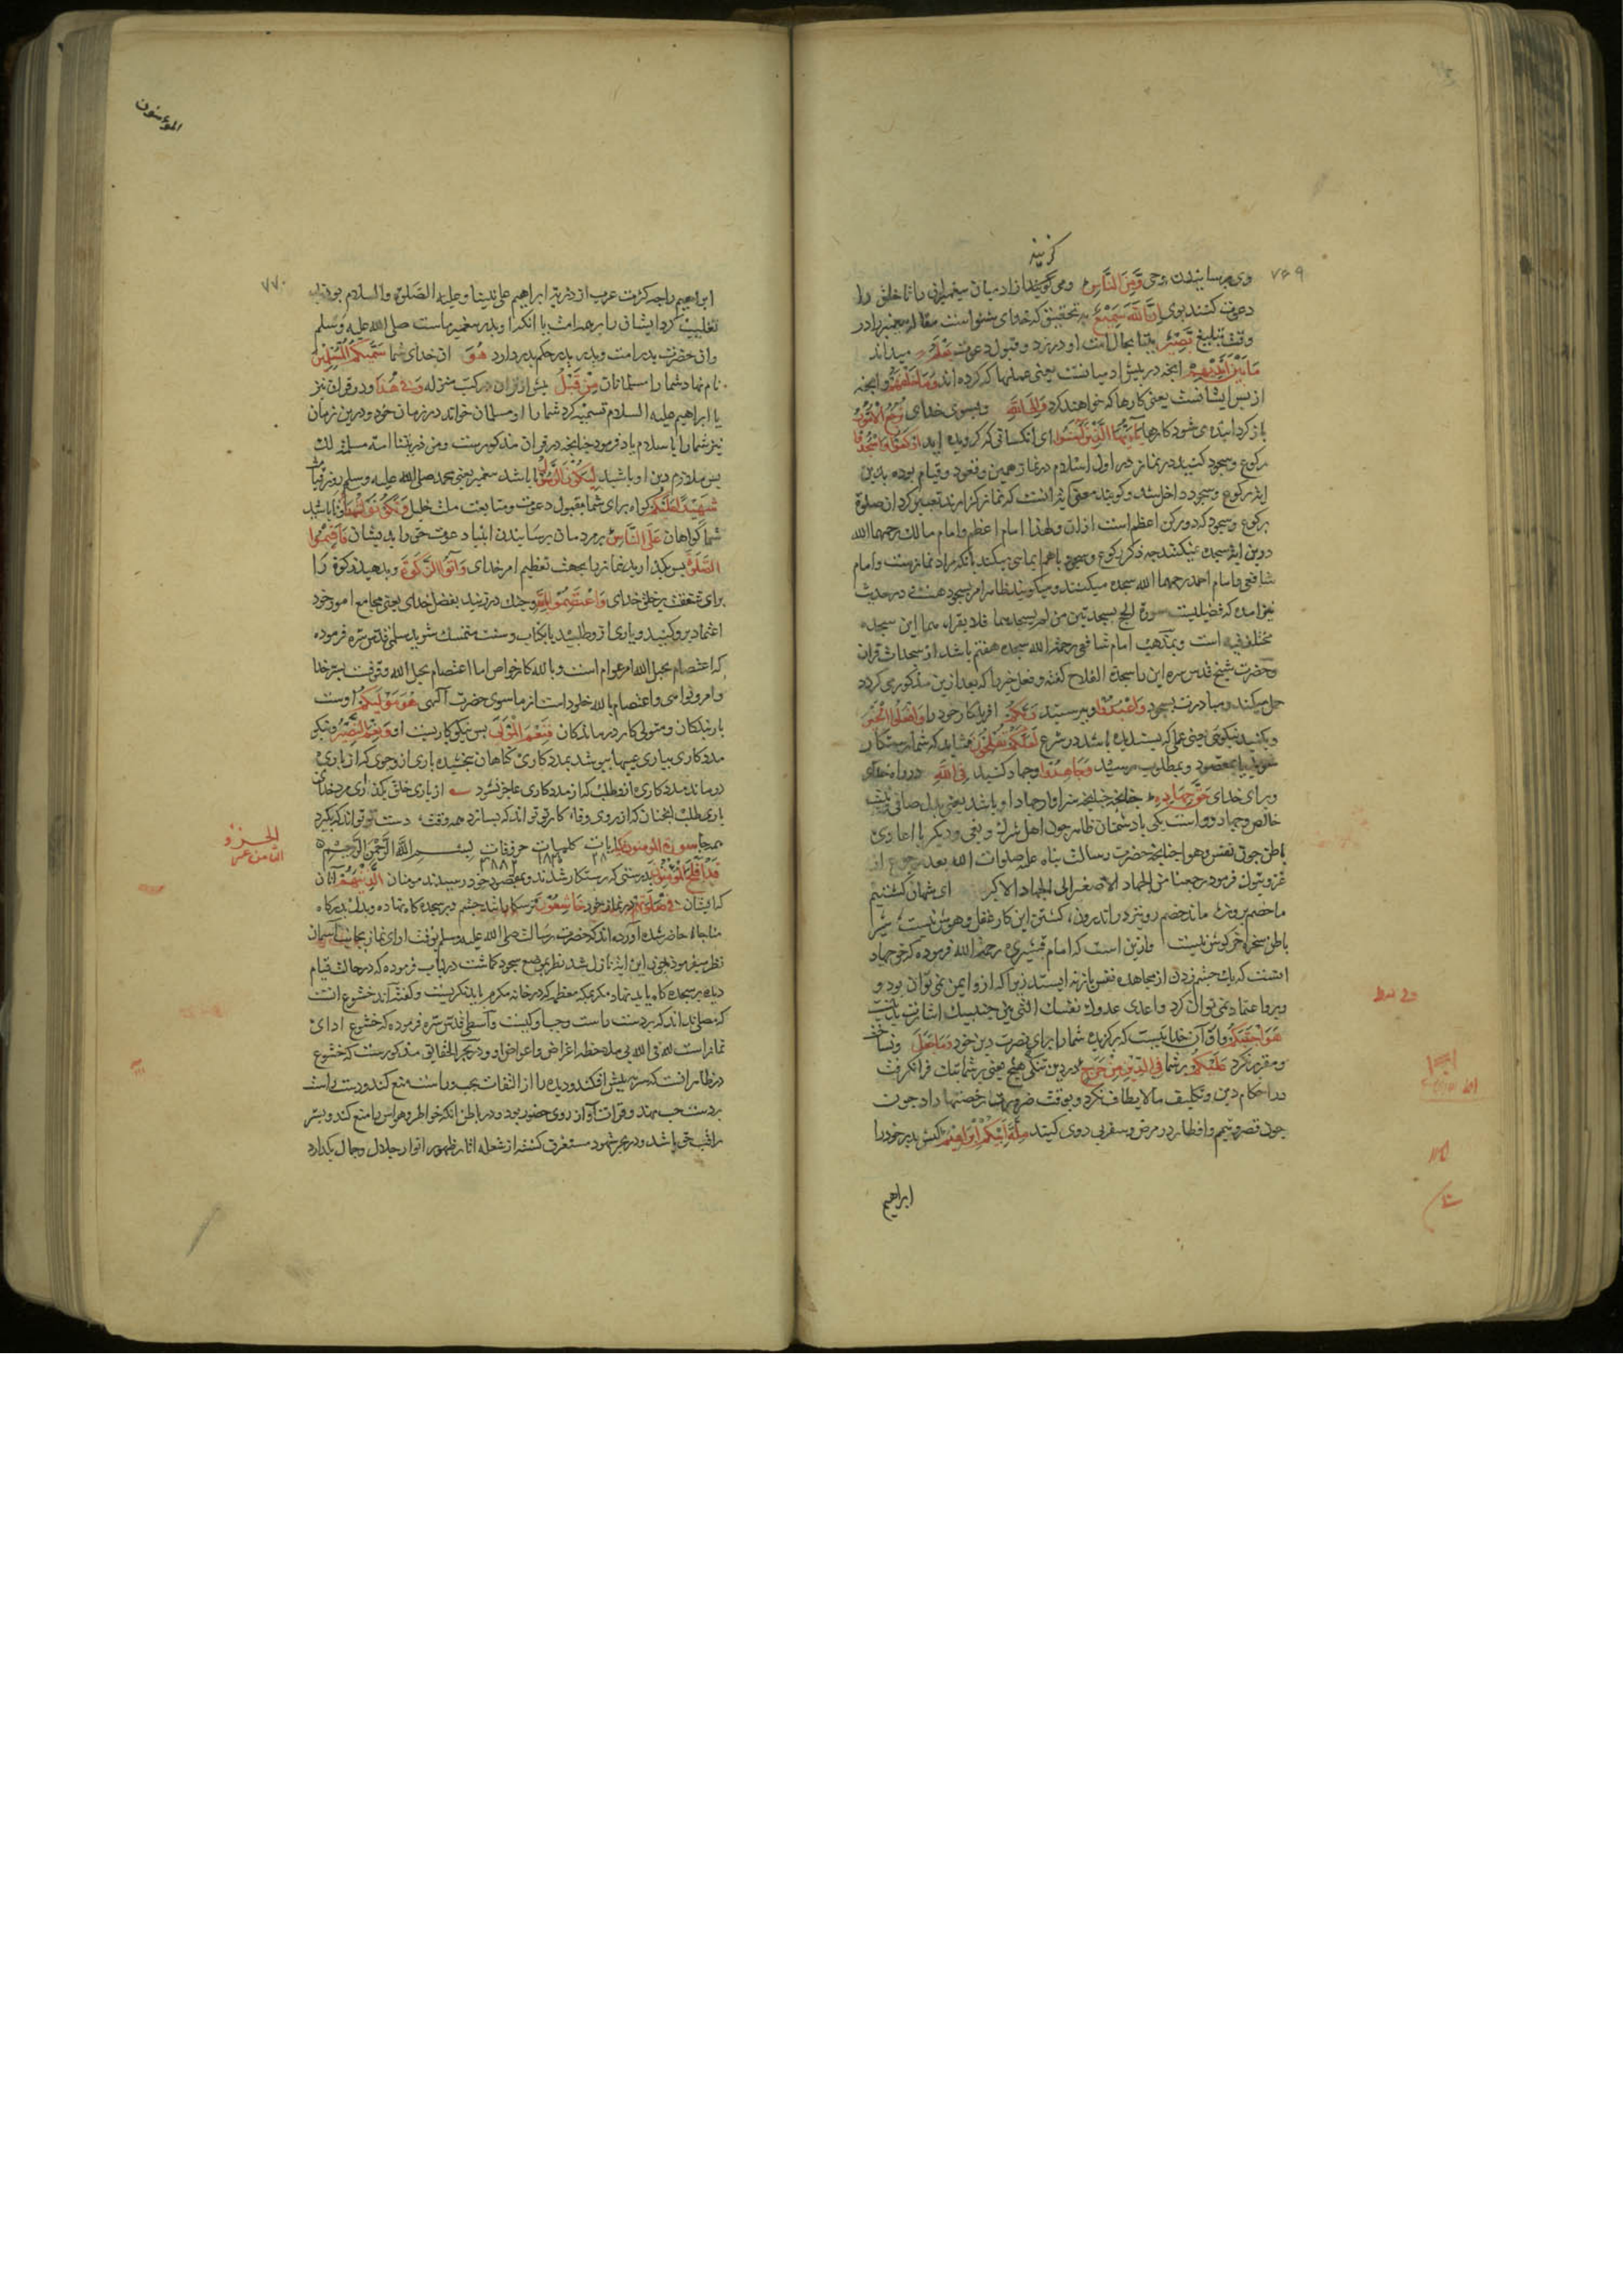 ۷۶۹
وحی وَمِنَ النَّاسِ و می کزیند از ادمیان پیغمبرانی را تا خلق را
دعوت کنند بوی اِنَّ اللّٰهَ سَمِیْعٌ بتحقیق که خدای شنواست
وقت تبلیغ بَصِیْرٌ بینا بحال امت او در رد و قبول دعوت یَعْلَمُ میداند
مَا بَیْنَ اَیْدِیْهِمْ انچه در پیش ادمیانست یعنی عملها که کرده اند وَمَا خَلْفَهُمْ و انچه
از پس ایشانست یعنی کارها که خواهند کرد وَاِلَی اللّٰهِ و بسوی خدای تُرْجَعُ الْاُمُوْرُ
باز کردانیده می شود کارها یَا اَیُّهَا الَّذِیْنَ اٰمَنُوا ای انکسانی که کرویده اید ارْکَعُوْا وَاسْجُدُوْا
رکوع و سجود کنید در نماز در اول اسلام در نماز همین وقعود و قیام بوده بدین
ایة رکوع و سجود داخل شد و کویند معنی آنست که نماز کزارید تعبیر کرد از صلوة
برکوع و سجود که دو رکن اعظم است ازان ولهذا امام اعظم و امام مالک رحمهما الله
درین ایة سجده نمیکنند چه ذکر رکوع و سجود باهم ایما می کند بانکه مراد نمازست و امام
شافعی و امام احمد رحمهما الله سجده میکنند و میکویند ظاهر امر بسجود هست و در حدیث
نیز امده که فضیلت سورة الحج بسجدتین من لم یسجدهما فلا یقراهما این سجده
مختلف فیه است و بمذهب امام شافعی رحمة الله سجده هفتم باشد از سجدات قران
و حضرت شیخ قدس سره این را سجدة الفلاح کفته و فعل خیر را که بعد ازین مذکور می کردد
حمل میکند و مبادرت بسجود وَاعْبُدُوْا و بپرستید رَبَّکُمْ افریدکار خود را وَافْعَلُوا الْخَیْرَ
و بکنید نیکوی یعنی عملی که پسندیده باشد در شرع لَعَلَّکُمْ تُفْلِحُوْنَ شاید که شما رستکار
شوید بمقصود و بمطلوب برسید وَجَاهِدُوْا و جهاد کنید فِی اللّٰهِ در راه خدای
و برای خدای حَقَّ جِهَادِهٖ چنانچه سزاوار جهاد او باشد یعنی بدل صافی و نیت
خالص و جهاد دو است یکی با دشمنان ظاهر چون اهل شرک و بغی و دیکر با اعادی
باطن چون نفس و هوا چنانچه حضرت رسالت پناه علیه صلوات الله بعد رجوع از
غزو تبوک فرمود رجعنا من الجهاد الاصغر الی الجهاد الاکبر ای شهان کشتیم
ما خصم برون ماند خصم زو بتر در اندرون کشتن این کار عقل و هوش نیست شیر
باطن سخره خرکوش نیست وازین است که امام قشیری رحمة الله فرموده که حق جهاد
انست که یک چشم زدن از مجاهده نفس باز نه ایستد زیرا که ازو ایمن نمی توان بود و
برو اعتماد نمی توان کرد و اعدی عدوک نفسک التی بین جنبیک اشارت بدانست
هُوَ اجْتَبٰکُمْ و او آن خدایست که برکزیده شما را برای نصرت دین خود وَمَا جَعَلَ و نساخت
و مقرر نکرد عَلَیْکُمْ بر شما فِی الدِّیْنِ مِنْ حَرَجٍ در دین تنکی هیچ یعنی بر شما تنک فرا نکرفت
در احکام دین و تکلیف ما لا یطاق نکرد و بوقت ضرورت رخصتها داد چون
چون قصر و تیمم و افطار در مرض و سفر پی روی کنید مِلَّةَ اَبِیْکُمْ اِبْرَاهِیْمَ کیش پدر خود را
ابراهیم
المؤمنون
۷۷۰
ابراهیم را چه کثرت عرب از ذریة ابراهیم علی نبینا و علیه الصلوة والسلام بودند
تغلیب کرد ایشان را بر همه امت یا انکه او پدر پیغمبر ماست صلی الله علیه وسلم
وان حضرت پدر امت و پدر پدر حکم پدر دارد هُوَ ان خدای شما سَمّٰیکُمُ الْمُسْلِمِیْنَ
نام نهاد شما را مسلمانان مِنْ قَبْلُ پیش از قران در کتب منزله وَفِیْ هٰذَا و در قران نیز
یا ابراهیم علیه السلام تسمیه کرد شما را او مسلمان خواند در زمان خود و درین زمان
نیز شما را باسلام یاد فرمود چنانچه در قران مذکورست ومن ذریتنا امة مسلمة لک
پس ملازم دین او باشید لِیَکُوْنَ الرَّسُوْلُ تا باشد پیغمبر یعنی محمد صلی الله علیه وسلم روز قیامت
شَهِیْدًا عَلَیْکُمْ کواه برای شما بقبول دعوت و متابعت ملت خلیل وَتَکُوْنُوْا شُهَدَآءَ تا باشید
شما کواهان عَلَی النَّاسِ بر مردمان برسانیدن انبیاء دعوت حق را بدیشان فَاَقِیْمُوا
الصَّلٰوةَ پس بکذارید نماز را بجهت تعظیم امر خدای وَاٰتُوا الزَّکٰوةَ و بدهید زکوة را
برای شفقت بر خلق خدای وَاعْتَصِمُوْا بِاللّٰهِ و چنک در زنید بفضل خدای یعنی مجامع امور خود
اعتماد برو کنید و یاری ازو طلبید یا بکتاب و سنت متمسک شوید سلمی قدس سره فرموده
که اعتصام بحبل الله مر عوام است و بالله کار خواص اما اعتصام بحبل الله
وامر و نواهی و اعتصام بالله خلود است از ما سوی حضرت آلهی هُوَ مَوْلٰیکُمْ اوست
یار بندکان و متولی کار درماندکان فَنِعْمَ الْمَوْلٰی پس نیکو یاریست او وَنِعْمَ النَّصِیْرُ و نیکو
مددکاری بیاری عیبها بپوشد بمددکاری کناهان ببخشد یاری ازو جوی که از یاری
درنماند مددکاری ازو طلب که از مددکاری عاجز نشود از یاری خلق بکذر ای مرد خدا
یاری طلب انچنان که از روی وفا کار تو تواند که بسازد همه وقت دست تو تواند که بکیرد
همه جا سورة المؤمنون مکیة ایات کلمات حروفات بسم الله الرحمن الرحیم
قَدْ اَفْلَحَ الْمُؤْمِنُوْنَ بدرستی که رستکار شدند و بمقصود خود رسیدند مومنان الَّذِیْنَ هُمْ آنان
که ایشان فِیْ صَلٰوتِهِمْ در نماز خود خَاشِعُوْنَ ترسکارانند چشم در سجده کاه نهاده و بدل بدرکاه
مناجات حاضر شده آورده اند که حضرت رسالت صلی الله علیه وسلم بوقت ادای نماز بجانب آسمان
نظر میفرمود چون این ایة نازل شد نظر بموضع سجود کماشت در لباب فرموده که در حالت قیام
دیده بر سجده کاه باید نهاد مکر بمکه معظمه که در خانه مکرم باید نکریست و کفته اند خشوع انست
که مصلی نداند که بر دست راست و چپ او کیست و واسطی قدس سره فرموده که خشوع ادای
نماز است لله فی الله بی ملاحظه اغراض و اعواض او و در بحر الحقایق مذکورست که خشوع
در ظاهر انست که سر پیش افکند و دیده را از التفات بچپ و راست منع کند و دست راست
بر دست چپ نهد و قرات آواز روی حضور بود و در باطن انکه خواطر و هواس را منع کند و بسر
راقب حق باشد و در بحر شهود مستغرق کشته از شعله اثار ظهور انوار جلال و جمال بکدازد
الجزء
الثامن عشر